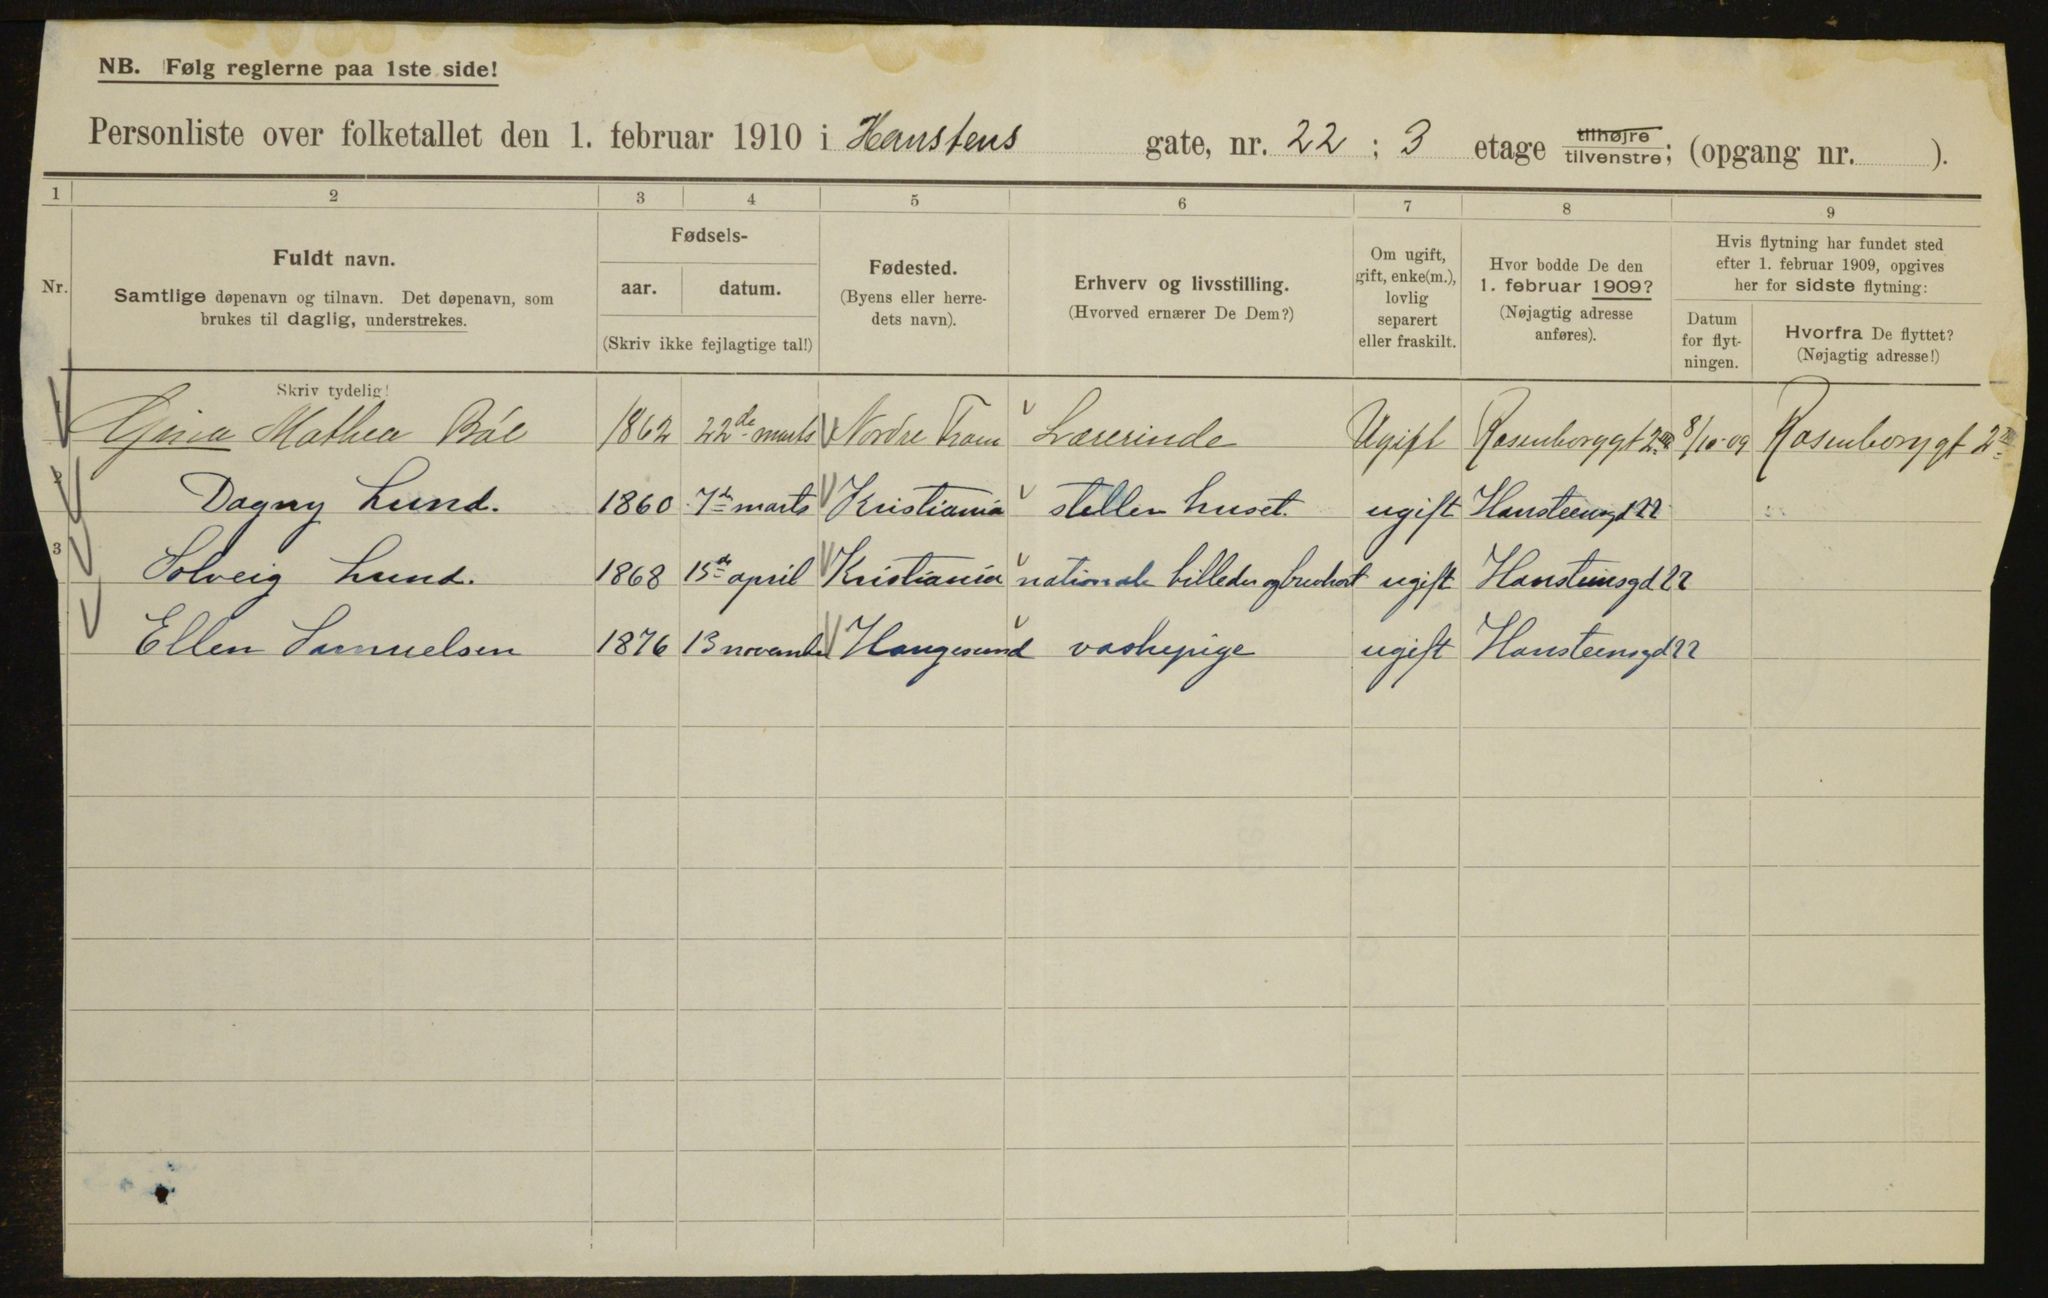 NB. Følg reglerne paa 1ste side!
Personliste over folketallet den 1. februar 1910 i Hanstens gate, nr. 22 ; 3 etage tilhøjre tilvenstre; (opgang nr. ).
1 2 3 4 5 6 7 8 9
Nr.
Fuldt navn.
Samtlige døpenavn og tilnavn. Det døpenavn, som
brukes til daglig, understrekes.
Skriv tydelig!
Fødsels-
aar. datum.
(Skriv ikke fejlagtige tal!)
Fødested.
(Byens eller herre-
dets navn).
Erhverv og livsstilling.
(Hvorved ernærer De Dem?)
Om ugift,
gift, enke(m.),
lovlig
separert
eller fraskilt.
Hvor bodde De den
1. februar 1909?
(Nøjagtig adresse
anføres).
Hvis flytning har fundet sted
efter 1. februar 1909, opgives
her for sidste flytning:
Datum
for flyt-
ningen.
Hvorfra De flyttet?
(Nøjagtig adresse!)
Gina Mathea Bøe 1862 22de marts Nordre Trom Lærerinde Ugift Rosenborggt 2 8/10-09 Rosenborggt 2
Dagny Lund. 1860 7de marts Kristiania steller huset. ugift Hansteensgd 22
3 Solveig Lund. 1868 15de april Kristiania nationale billeder og ugift Hansteensgd 22
Ellen Samuelsen 1876 13 november Haugesund vaskepige ugift Hansteensgd 22